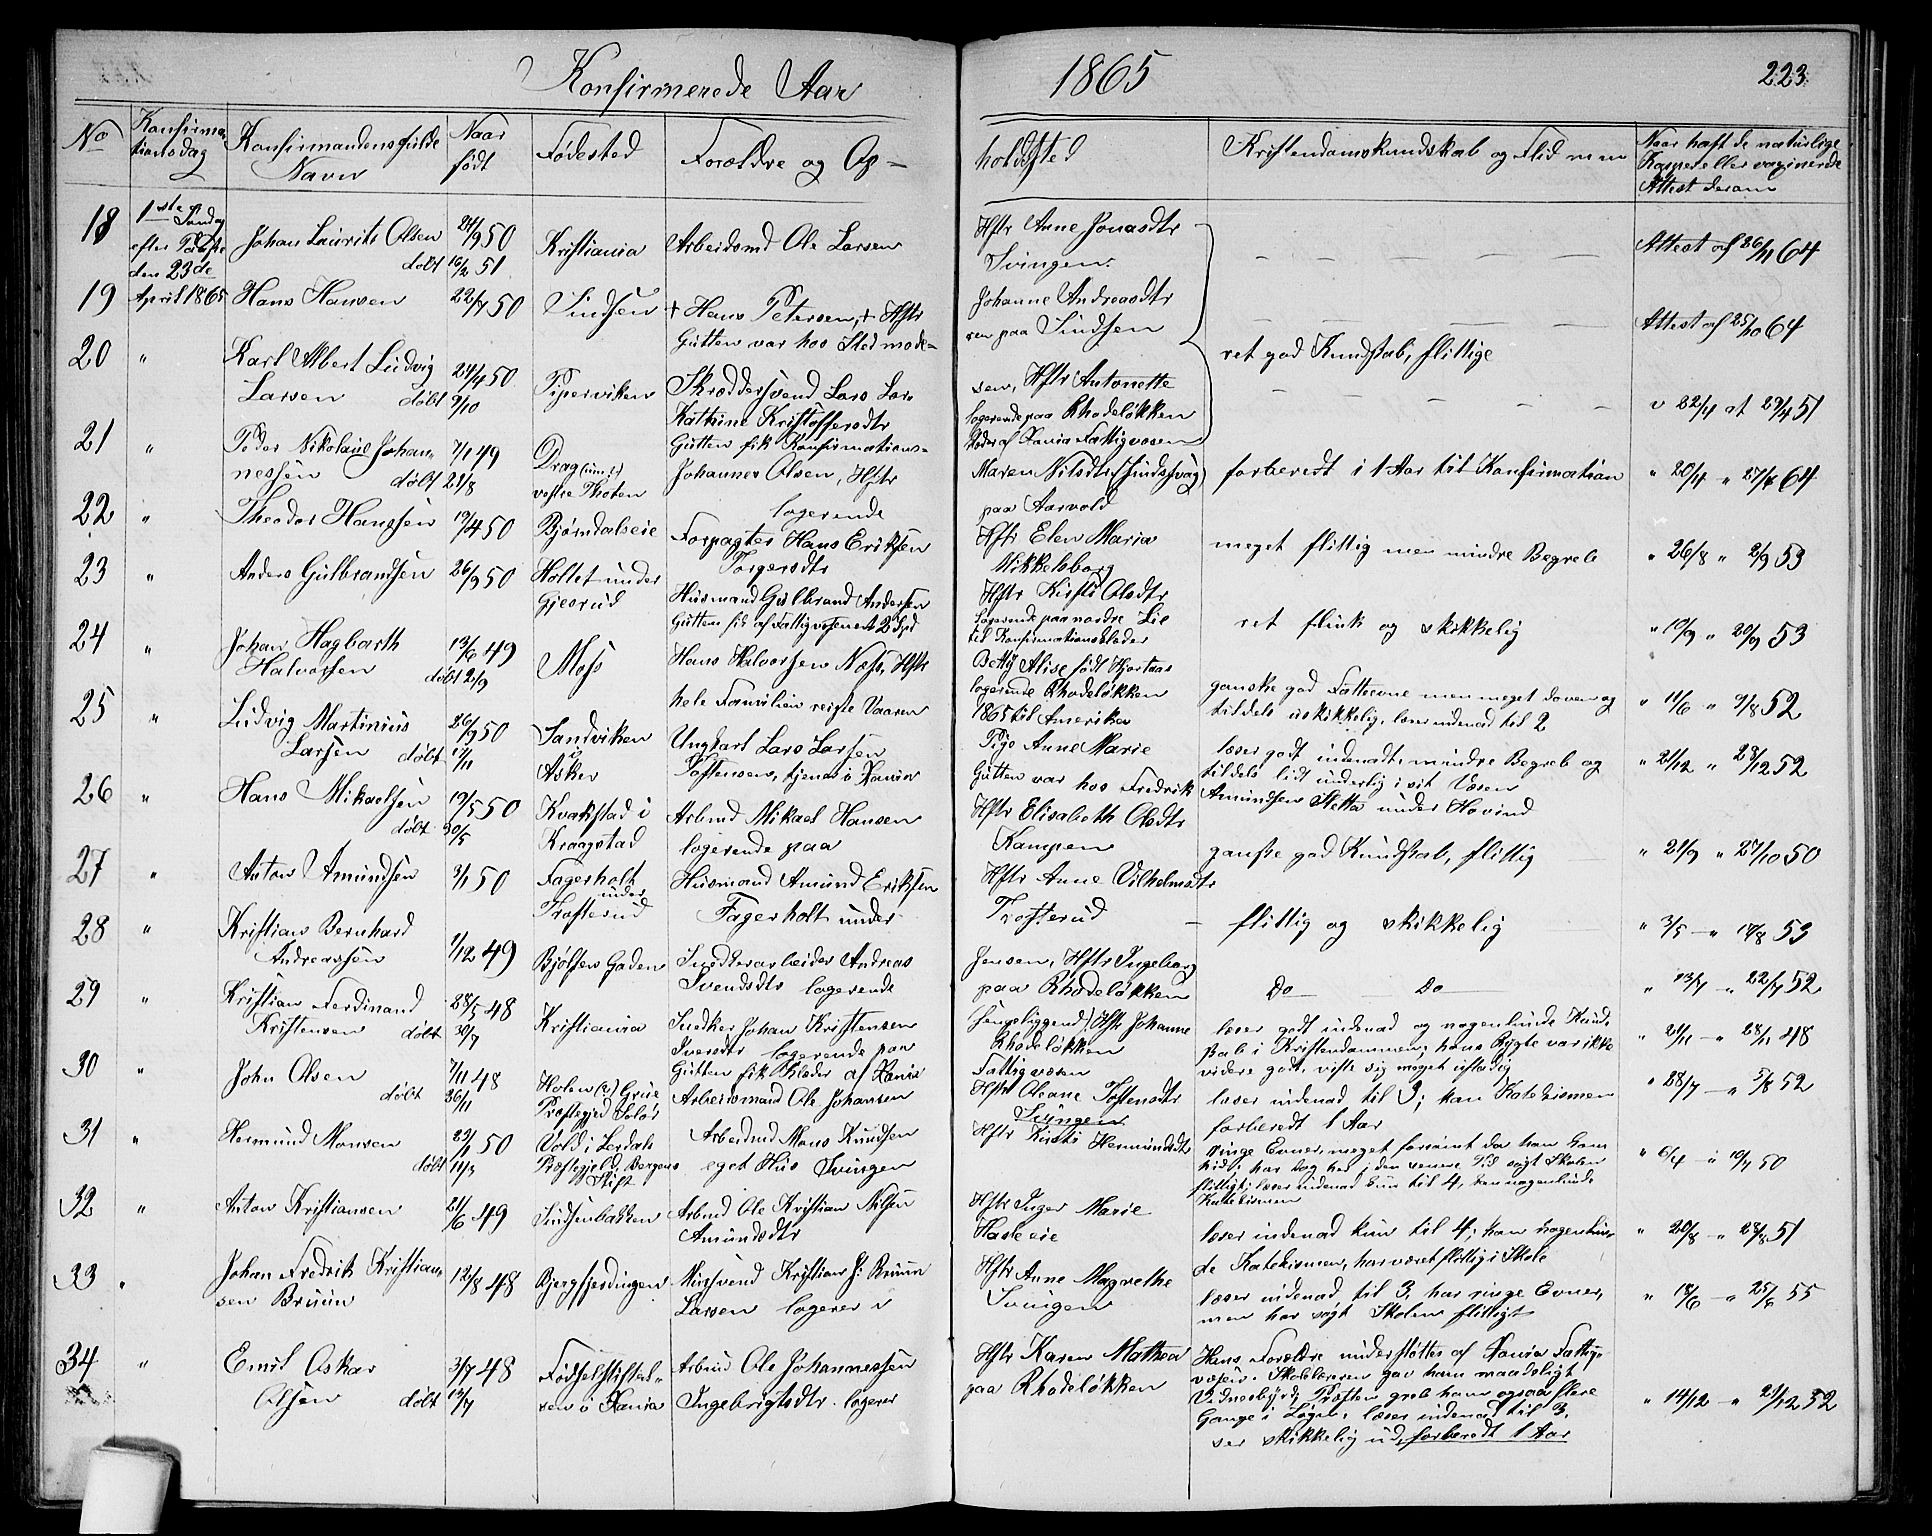 Konfirmerede Aar 1865
223
No
Konfirma-
tionsdag
Konfirmandens fulde
Navn
Naar
født
Fødested
Forældre og Op-
holdssted
Kristendomskundskab og Flid m m
Naar haft de naturlige
Kopper eller vaxinerede
Attest derom
18
1ste Søndag
efter Paaske
den 23de
April 1865
Johan Laurits Olsen
døbt 16/2 51
24/9 50
Kristiania
Arbeidsmd Ole Larsen
Hftr Anne Jonasdtr
Svingen
Attest af 26/11 64
19
Hans Hansen
22/7 50
Sindsen
+ Hans Petersen, + Hftr
Johanne Andreasdtr
Gutten var hos Stedmode-
ren paa Sindsen
Attest af 25/10 64
ret god Kundskab, flittige
20
"
Karl Albert Ludvig
Larsen døbt 9/10
24/4 50
Piperviken
Skræddersvend Lars Lar-
sen, Hftr Antonette
Katrine Kristoffersdtr
logerende paa Rhodeløkken
Gutten fik Konfirmations-
klæder af Xania Fattigvæsen
v 22/4 at 29/4 51
21
"
Peder Nikolaus Johan-
nessen døbt 21/8
7/7 49
Drag
vestre Thoten
Johannes Olsen, Hftr
Maren Nilsdtr
logerende
paa Aarvold
forberedt i 1 Aar til Konfirmation
" 20/4 " 27/4 64
22
"
Theodor Hanssen
19/4 50
Bjørndalseie
Forpagter Hans Eriksen
Hftr Elen Maria
Torgersdtr
Mikkelsborg
meget flittig men mindre Begreb
" 26/8 " 2/9 53
23
"
Anders Gulbrandsen
26/9 50
Holtet under
Gjesrud
Husmand Gulbrand Andersen
Hftr Kirsti Olsdtr
logerende paa nordre Lie
Gutten fik af Fattigvæsenet 2 Spd
til Konfirmationsklæder
ret flink og skikkelig
" 19/9 " 20/9 53
24
"
Johan Hagbarth
Halvorsen døbt 2/9
13/6 49
Moss
Hans Halvorsen Næss, Hftr
Betty Alise født Hjortaas
logerende Rhodeløkken
hele Familien reiste Vaaren
1865 til Amerika
ganske god Fatteevne men meget doven og
tildels uskikkelig, læser indenad til 2
" 11/6 " 9/8 52
25
"
Ludvig Martinius
Larsen døbt 17/11
26/9 50
Sandviken
i
Asker
Ungkarl Lars Larsen
Pige Anne Marie
Toftensen, tjenes i Xania
Gutten var hos Fredrik Amundsen Sletta under Hovind
læser godt indenadt, mindre Begreb og
tildels lidt underlig i sit Væsen
" 21/12 " 28/12 52
26
"
Hans Mikaelsen
døbt 30/5
19/5 50
Kvakstad i
Kraagstad
Arbmd Mikael Hansen
Hftr Elisabeth Olsdtr
logerende paa
Kampen
ganske god Kundskab, flittig
" 21/9 " 27/10 50
27
"
Anton Amundsen
3/1 50
Fagerholt
under
Trosterud
Husmand Amund Eriksen
Hftr Anne Vilhelmsdtr
Fagerholt under
Trosterud
flittig og skikkelig
" 3/5 — " 10/8 53
28
"
Kristian Bernhard
Andreassen
1/12 49
Bjølsen Gaden
Snedkerarbeider Andreas
Jensen, Hftr Ingeborg
Svendsdtr logerende
paa Rhodeløkken
Do — Do
" 13/7 — " 22/7 52
29
"
Kristian Ferdinand
Kristensen døbt 30/7
28/5 48
Kristiania
Snedker Johan Kristensen
(sengeliggend) Hftr Johanne
Iversdtr logerende paa
Rhodeløkken
Gutten fik Klæder af Xania
Fattigvæsen
læser godt indenad og nogenlunde Kund-
skab i Kristendommen; hans Rygte var ikke
videre godt, viste sig meget ustadig
" 21/11 — " 28/11 48
30
"
John Olsen
døbt 26/11
7/11 48
Holen (?) Grue
Præstegjed Soløs
Arbeidsmand Ole Johansen
Hftr Oleane Toftensdtr
Svingen
læser indenad til 3; kan Katekismen
forberedt 1 Aar
" 28/7 — " 5/8 52
31
"
Hermund Monsen
døbt 11/3
50
Vold i Lerdals
Præstegjeld, Bergens
Stift
Arbeidsmd Mons Knudsen
Hftr Kirsti Hermundsdtr
eget Hus Svingen
ringe Evner, meget forsømt da han kom
hid; har dog her i den senere Tid søgt Skolen
flittigt; læser indenad kun til 4, kan nogenlunde
Katekismen
" 6/4 — " 10/7 50
32
"
Anton Kristiansen
21/6 49
Sindsenbakken
Arbmd Ole Kristian Nilsen
Hftr Inger Marie
Amundsdtr
Hasleeie
læser indenad kun til 4; kan nogenlun-
de Katekismen, har været flittig i Skole
" 20/8 — " 28/8 51
33
"
Johan Fredrik Kristian-
sen Bruun
12/8 48
Bjergfjerdingen
Mursvend Kristian J: Bruun
Hftr Anne Magrethe
Larsen logerer i
Svingen
læser indenad til 3, har ringe Evner,
men har søgt Skolen flittigt
" 18/6 — " 25/6 55
34
"
Emil Oskar
Olsen døbt 13/7
3/7 48
Fødselsstiftel-
sen i Xania
Arbmd Ole Johannessen
Hftr Karen Mathea
Ingebrigtsdtr. logerer
paa Rhodeløkken
Hans Forældre understøttes af Xania Fattig-
væsen. Skolelæreren gav ham maadeligt
Vidnesbyrd, Præsten greb ham ogsaa flere
Gange i Løgn, læser indenad til 3,
ser skikkelig ud, forberedt 1 Aar
" 14/12 — " 21/12 52